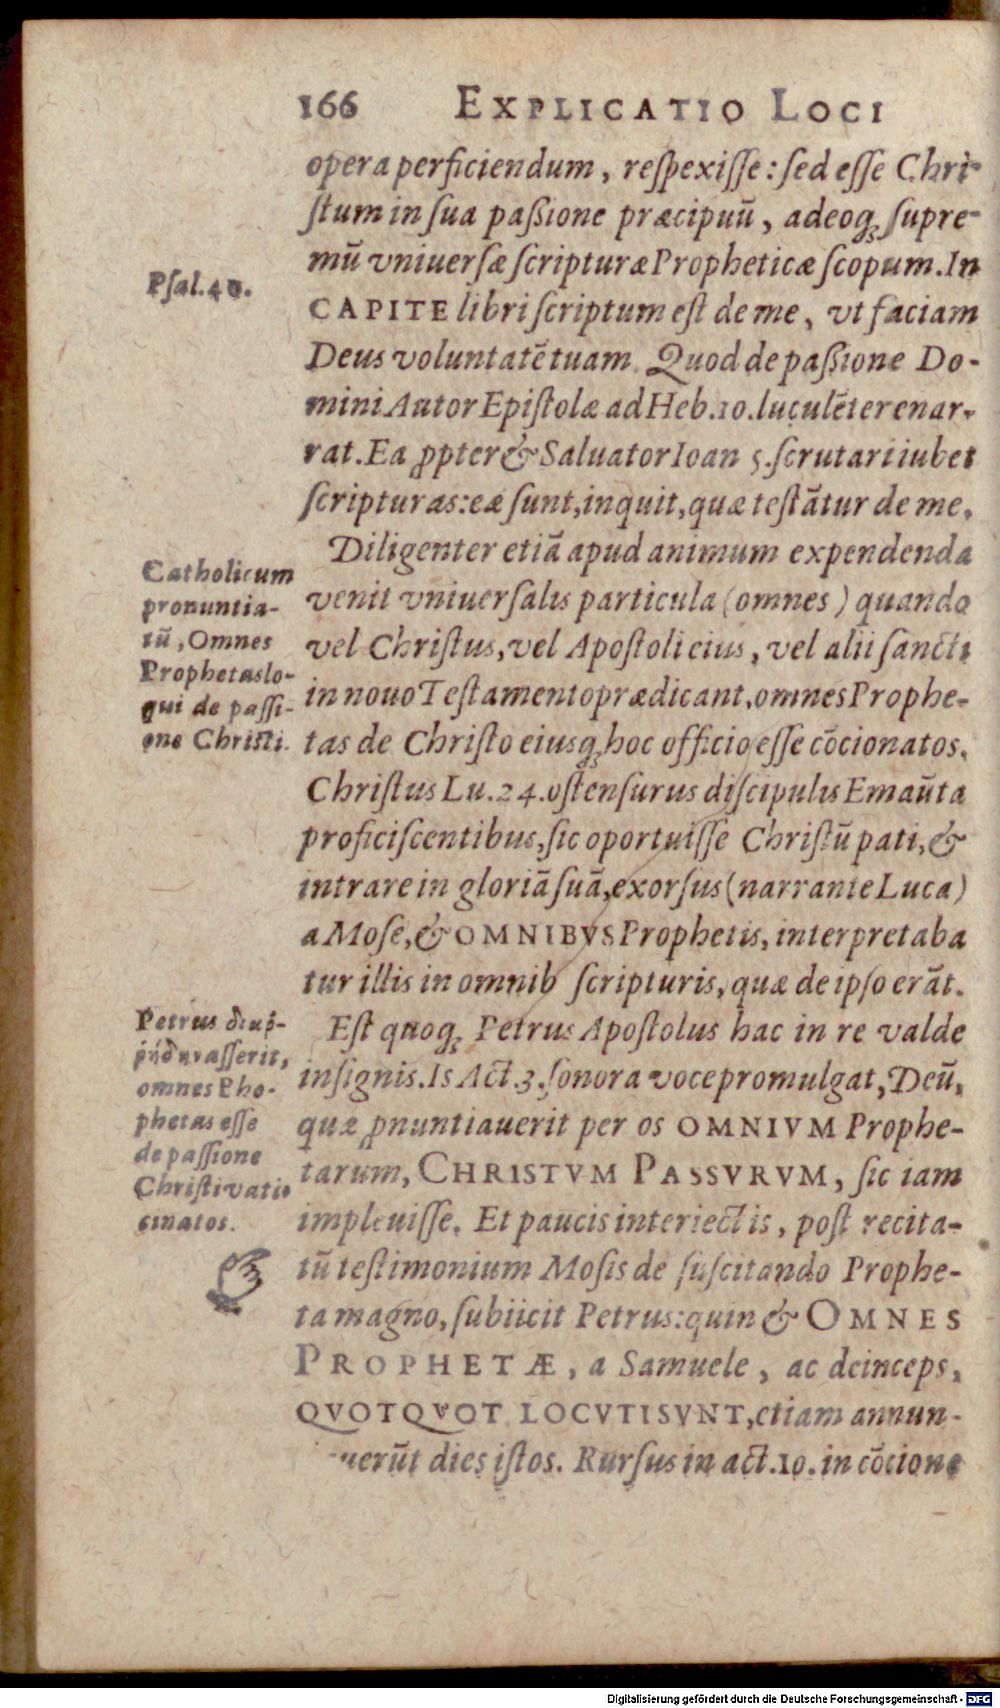 166 EXPLICATIO LOCI
opera perficiendum, reſpexiſſe: ſed eſſe Chri-
ſtum in ſua paßione præcipuũ, adeoq; ſupre-
mũ vniuerſæ ſcripturæ Propheticæ ſcopum. In
Pſal. 40.
CAPITE libri ſcriptum eſt de me, vt faciam
Deus voluntatẽ tuam. Quod de paßione Do-
mini Autor Epiſtolæ ad Heb. 10. luculẽter enar-
rat. Ea ꝓpter & Saluator Ioan 5. ſcrutari iubet
ſcripturas: eæ ſunt, inquit, quæ teſtãtur de me.
Diligenter etiã apud animum expendenda
venit vniuerſalis particula (omnes) quando
vel Chriſtus, vel Apoſtoli eius, vel alii ſancti
in nouo Teſtamento prædicant, omnes Prophe-
tas de Chriſto eiusq; hoc officio eſſe cõcionatos.
Catholicum
pronuntia-
tũ, Omnes
Prophetas lo-
qui de paſſi-
one Chriſti.
Chriſtus Lu. 24. oſtenſurus diſcipulis Emaũta
proficiſcentibus, ſic oportuiſſe Chriſtũ pati, &
intrare in gloriã ſuã, exorſus (narrante Luca)
a Moſe, & OMNIBVS Prophetis, interpretaba
tur illis in omnib ſcripturis, quæ de ipſo erãt.
Eſt quoq; Petrus Apoſtolus hac in re valde
inſignis. Is Act. 3. ſonora voce promulgat, Deũ,
quæ ꝓnuntiauerit per os OMNIVM Prophe-
tarum, CHRISTVM PASSVRVM, ſic iam
impleuiſſe. Et paucis interiectis, poſt recita-
Petrus
aſſerit,
omnes Pho-
phetas eſſe
de paſſione
Chriſti vati
cinatos.
tũ teſtimonium Moſis de ſuſcitando Prophe-
ta magno, ſubiicit Petrus: quin & OMNES
PROPHETÆ, a Samuele, ac deinceps,
QVOTQVOT LOCVTI SVNT, etiam annun-
uerũt dies iſtos. Rurſus in act. 10. in cõcione
Digitalisierung gefördert durch die Deutsche Forschungsgemeinschaft - DFG